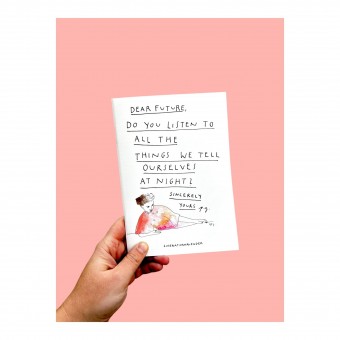 DEAR FUTURE,
DO YOU LISTEN TO
ALL THE
THINGS WE TELL
OURSELVES
AT NIGHT?
SINCERELY
YOURS